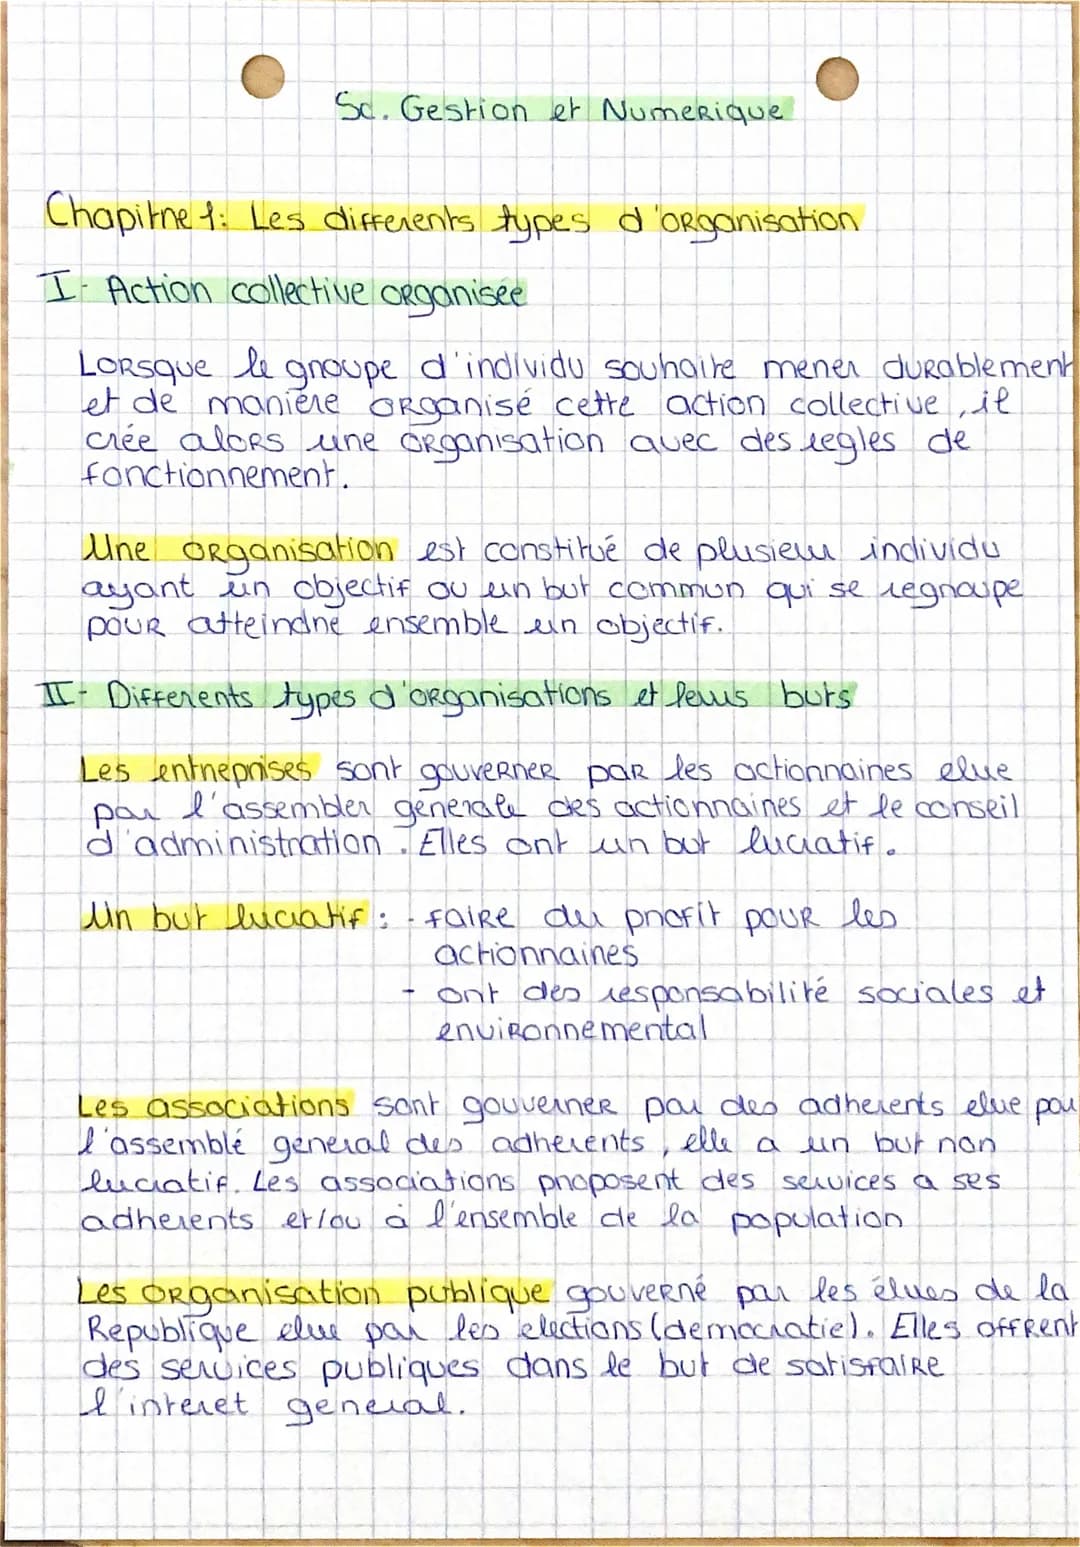 Sc. Gestion et Numerique
Chapitre 1: Les differents types d'organisation
I- Action collective organisée
Lorsque le groupe d'individu souhaite mener durablement
et de manière organisé cette action collective, il
crée alors une organisation avec des regles de
fonctionnement.
Une organisation est constitué de plusieur individu
ayant un objectif ou un but commun qui se regroupe
pour atteindre ensemble un objectif.
II- Differents types d'organisations et leurs buts
Les entreprises sont gouverner par les actionnaires elue
par l'assembler génerale des actionnaires et le conseil
d'administration. Elles ont un but lucratif.
Un but lucratif : - faire du profit pour les
actionnaires
- ont des responsabilité sociales et
environnemental
Les associations sont gouverner par des adherents elue par
l'assemblé géneral des adherents, elle a un but non
lucratif. Les associations proposent des services a ses
adherents et/ou à l'ensemble de la population
Les organisation publique gouverné par les élues de la
Republique elue par les elections (democratie). Elles offrent
des services publiques dans le but de satisfaire
l'interet general.